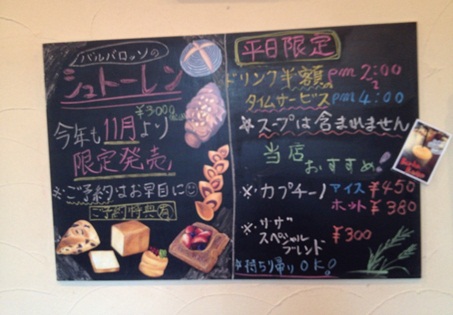 バルバロッソの
シュトーレン
¥3000
今年も11月より
限定発売
※ご予約はお早目に
ご予約特典有
平日限定
ドリンク半額 pm 2:00
タイムサービス pm 4:00
※スープは含まれません
当店
おすすめ!
※カプチーノ アイス ¥450
ホット ¥380
※リーザ ¥300
スペシャル
ブレンド
※持ち帰りOK!